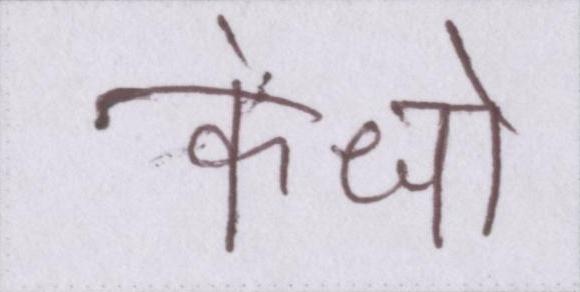 केंधो